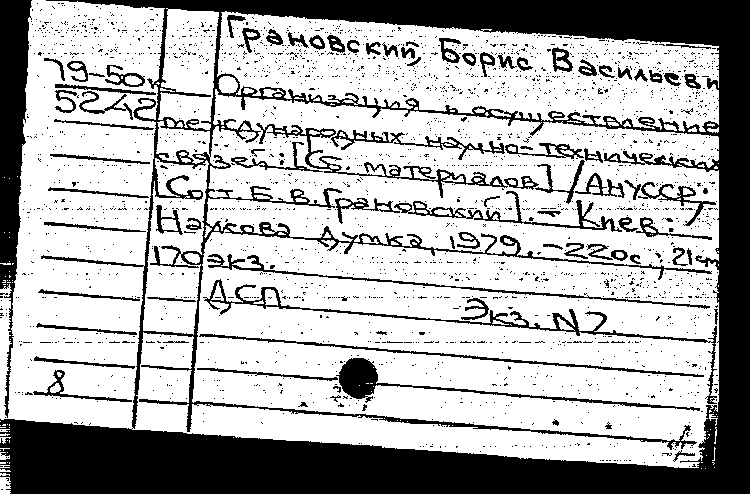 Грановский, Борис Васильеви
79-50к Организация и осуществление
52412 международных научно-технических
связей: [Сб. материалов] / АН УССР;
[Сост. Б. В. Грановский]. – Киев:
Наукова думка, 1979. – 220с.; 21см
170 экз.
ДСП Экз. N 7.
8